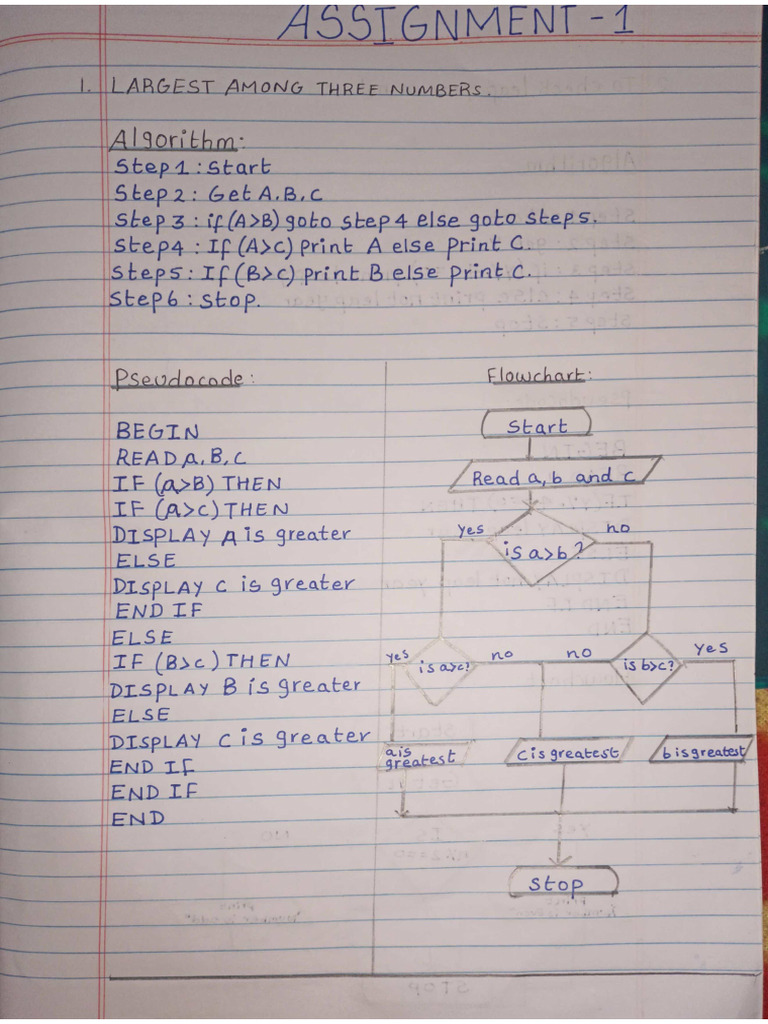 ASSIGNMENT - 1
1. LARGEST AMONG THREE NUMBERS.
Algorithm:
Step 1 : Start
Step 2 : Get A, B, C
Step 3 : if (A>B) goto step 4 else goto step 5.
Step 4 : If (A>C) Print A else Print C.
Step 5 : If (B>C) print B else print C.
Step 6 : Stop.
Pseudocode :
BEGIN
READ A, B, C
IF (a>B) THEN
IF (a>c) THEN
DISPLAY A is greater
ELSE
DISPLAY C is greater
END IF
ELSE
IF (B>c) THEN
DISPLAY B is greater
ELSE
DISPLAY C is greater
END IF
END IF
END
Flowchart :
Start
Read a, b and c
yes
no
is a>b ?
yes
is a>c?
no
no
is b>c?
yes
a is
greatest
C is greatest
b is greatest
Stop